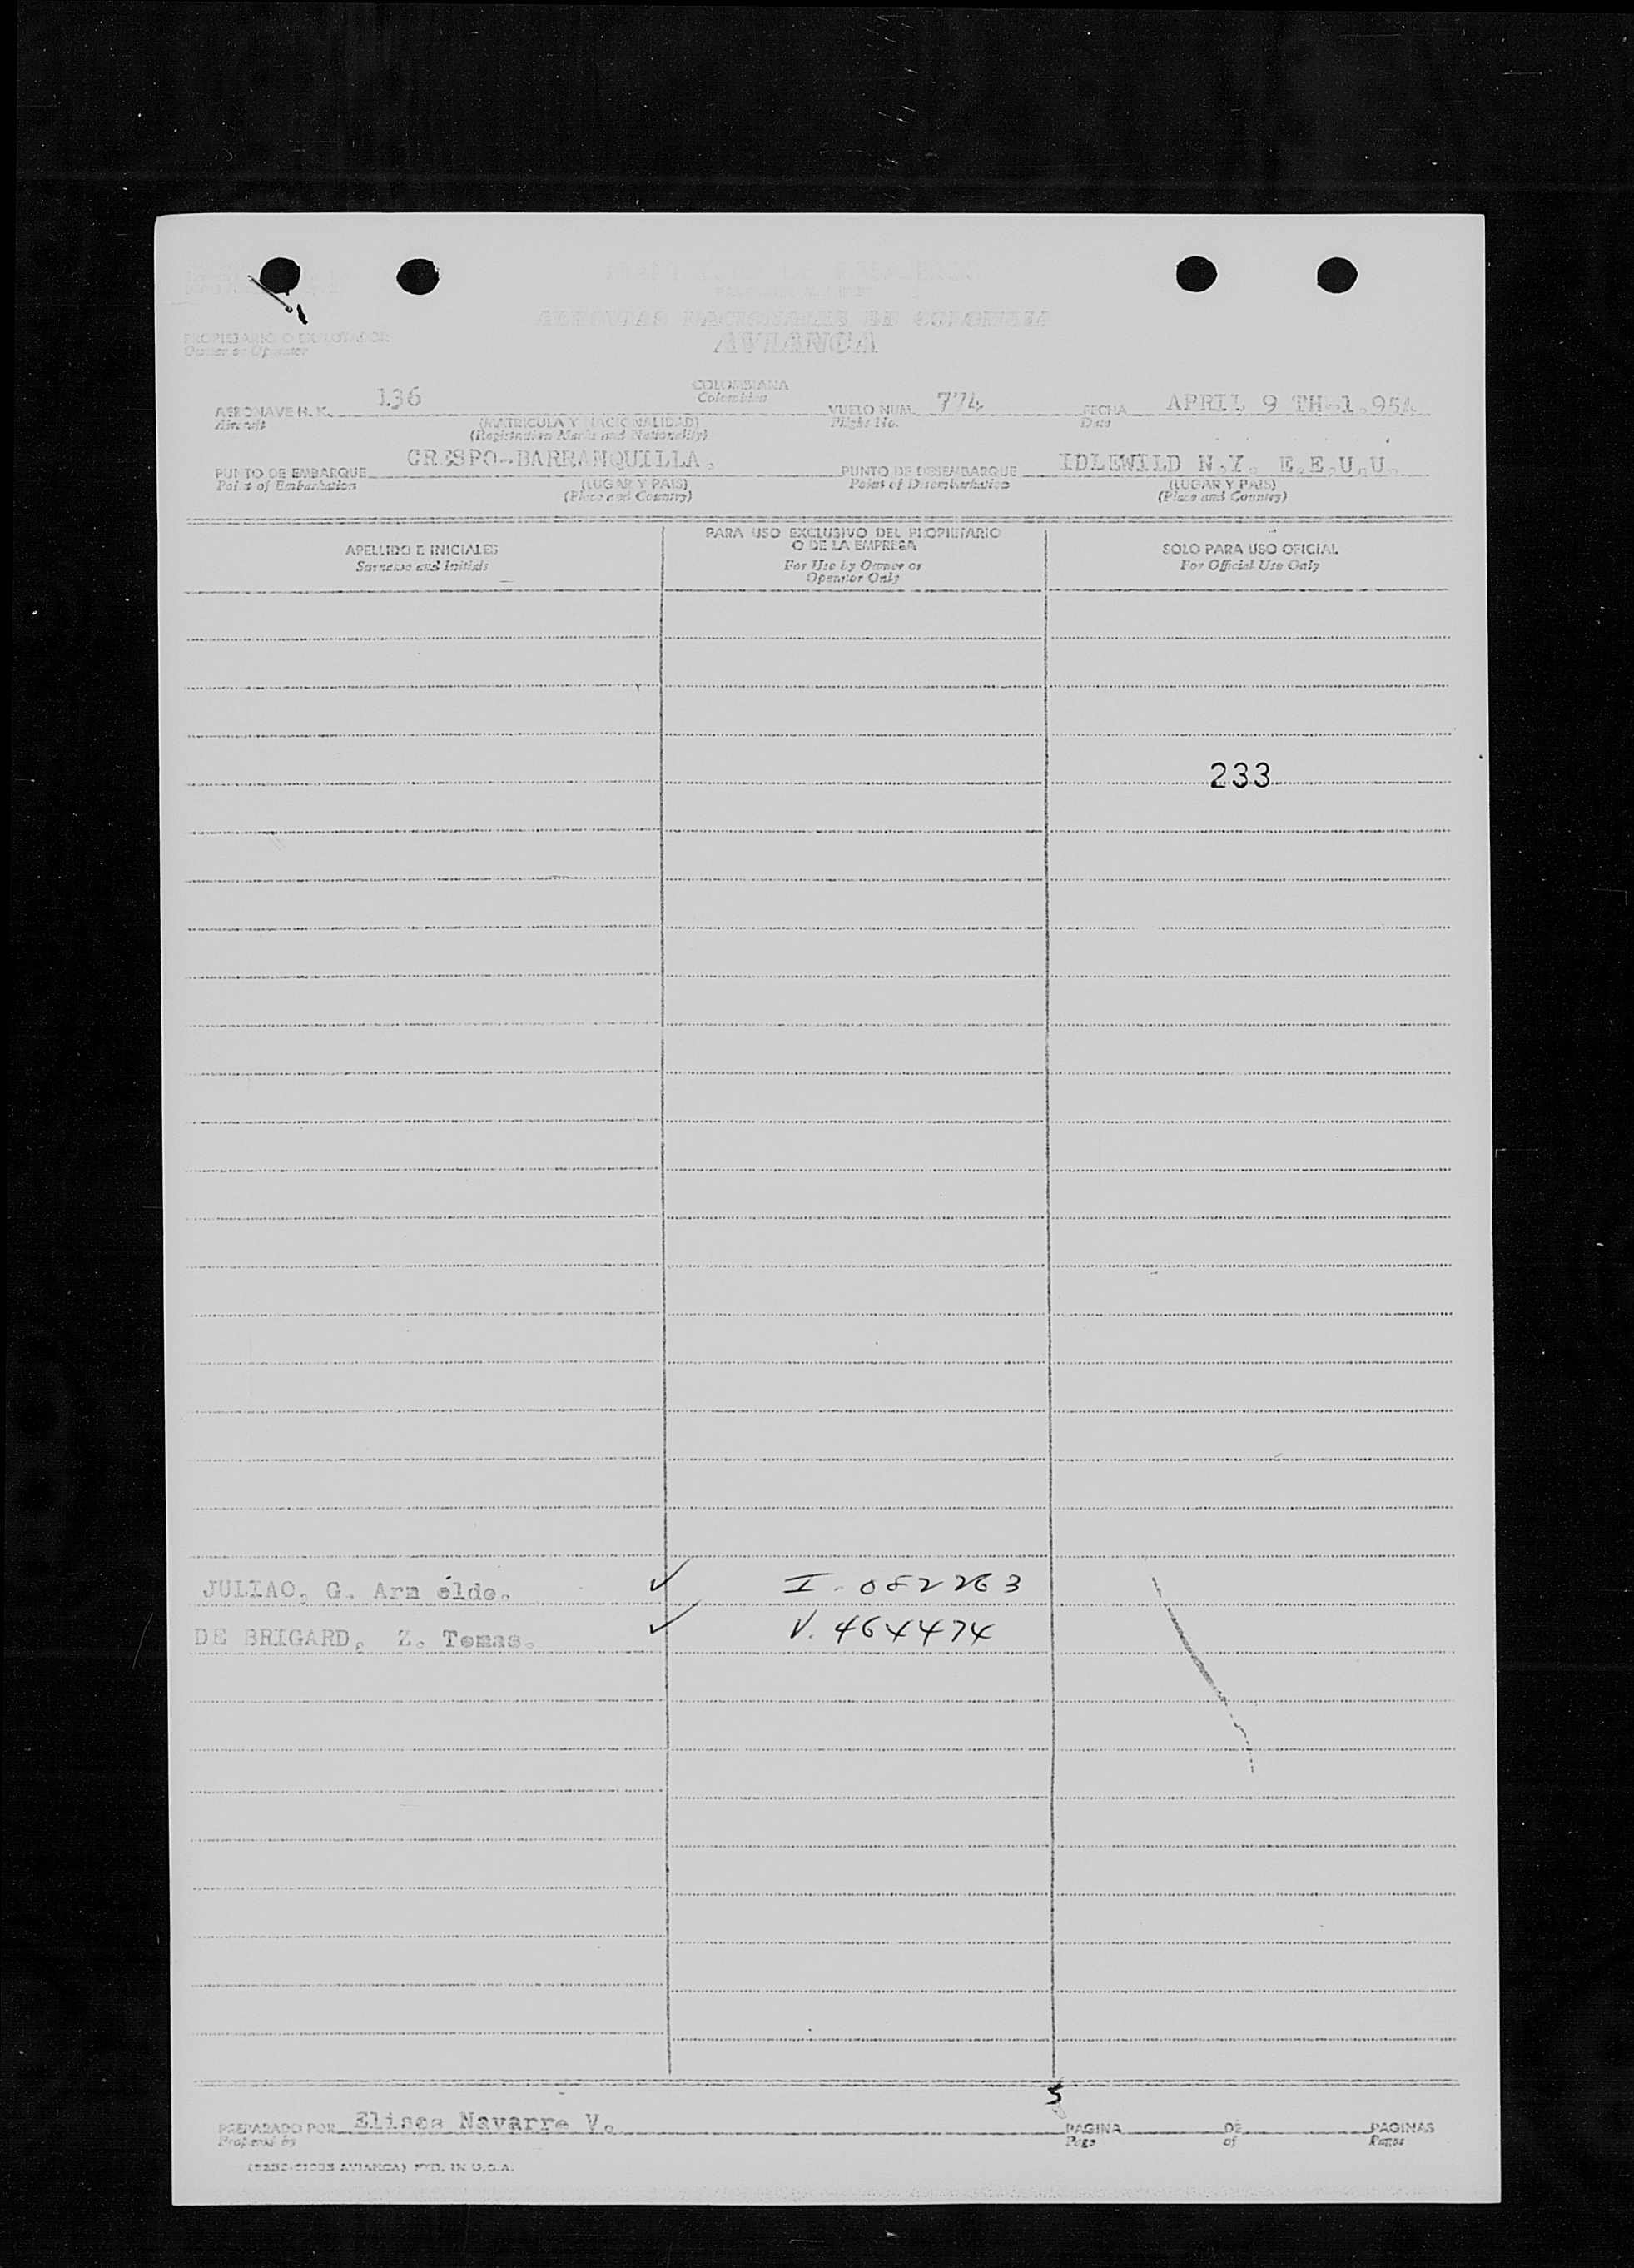 AEROVIAS NACIONALES DE COLOMBIA
AVIANCA
PROPIETARIO O EXPLOTADOR
Owner or Operator
AERONAVE H. K. 136 COLOMBIANA VUELO NUM. 774 FECHA APRIL 9 TH-1.954
Aircraft Colombian Flight No. Date
(MATRICULA Y NACIONALIDAD)
(Registration Marks and Nationality)
PUNTO DE EMBARQUE CRESPO-BARRANQUILLA. PUNTO DE DESEMBARQUE IDLEWILD N.Y. E.E.U.U.
Point of Embarkation (LUGAR Y PAIS) Point of Disembarkation (LUGAR Y PAIS)
(Place and Country) (Place and Country)
APELLIDO E INICIALES
Surname and Initials
PARA USO EXCLUSIVO DEL PROPIETARIO
O DE LA EMPRESA
For Use by Owner or
Operator Only
SOLO PARA USO OFICIAL
For Official Use Only
233
JULIAO, G. Arn oldo. ✓ I. 082263
DE BRIGARD, Z. Tomas. ✓ V. 464474
5
PREPARADO POR Elisea Navarro V. PAGINA DE PAGINAS
Prepared by Page of Pages
AVIANCA) PTD. IN U.S.A.